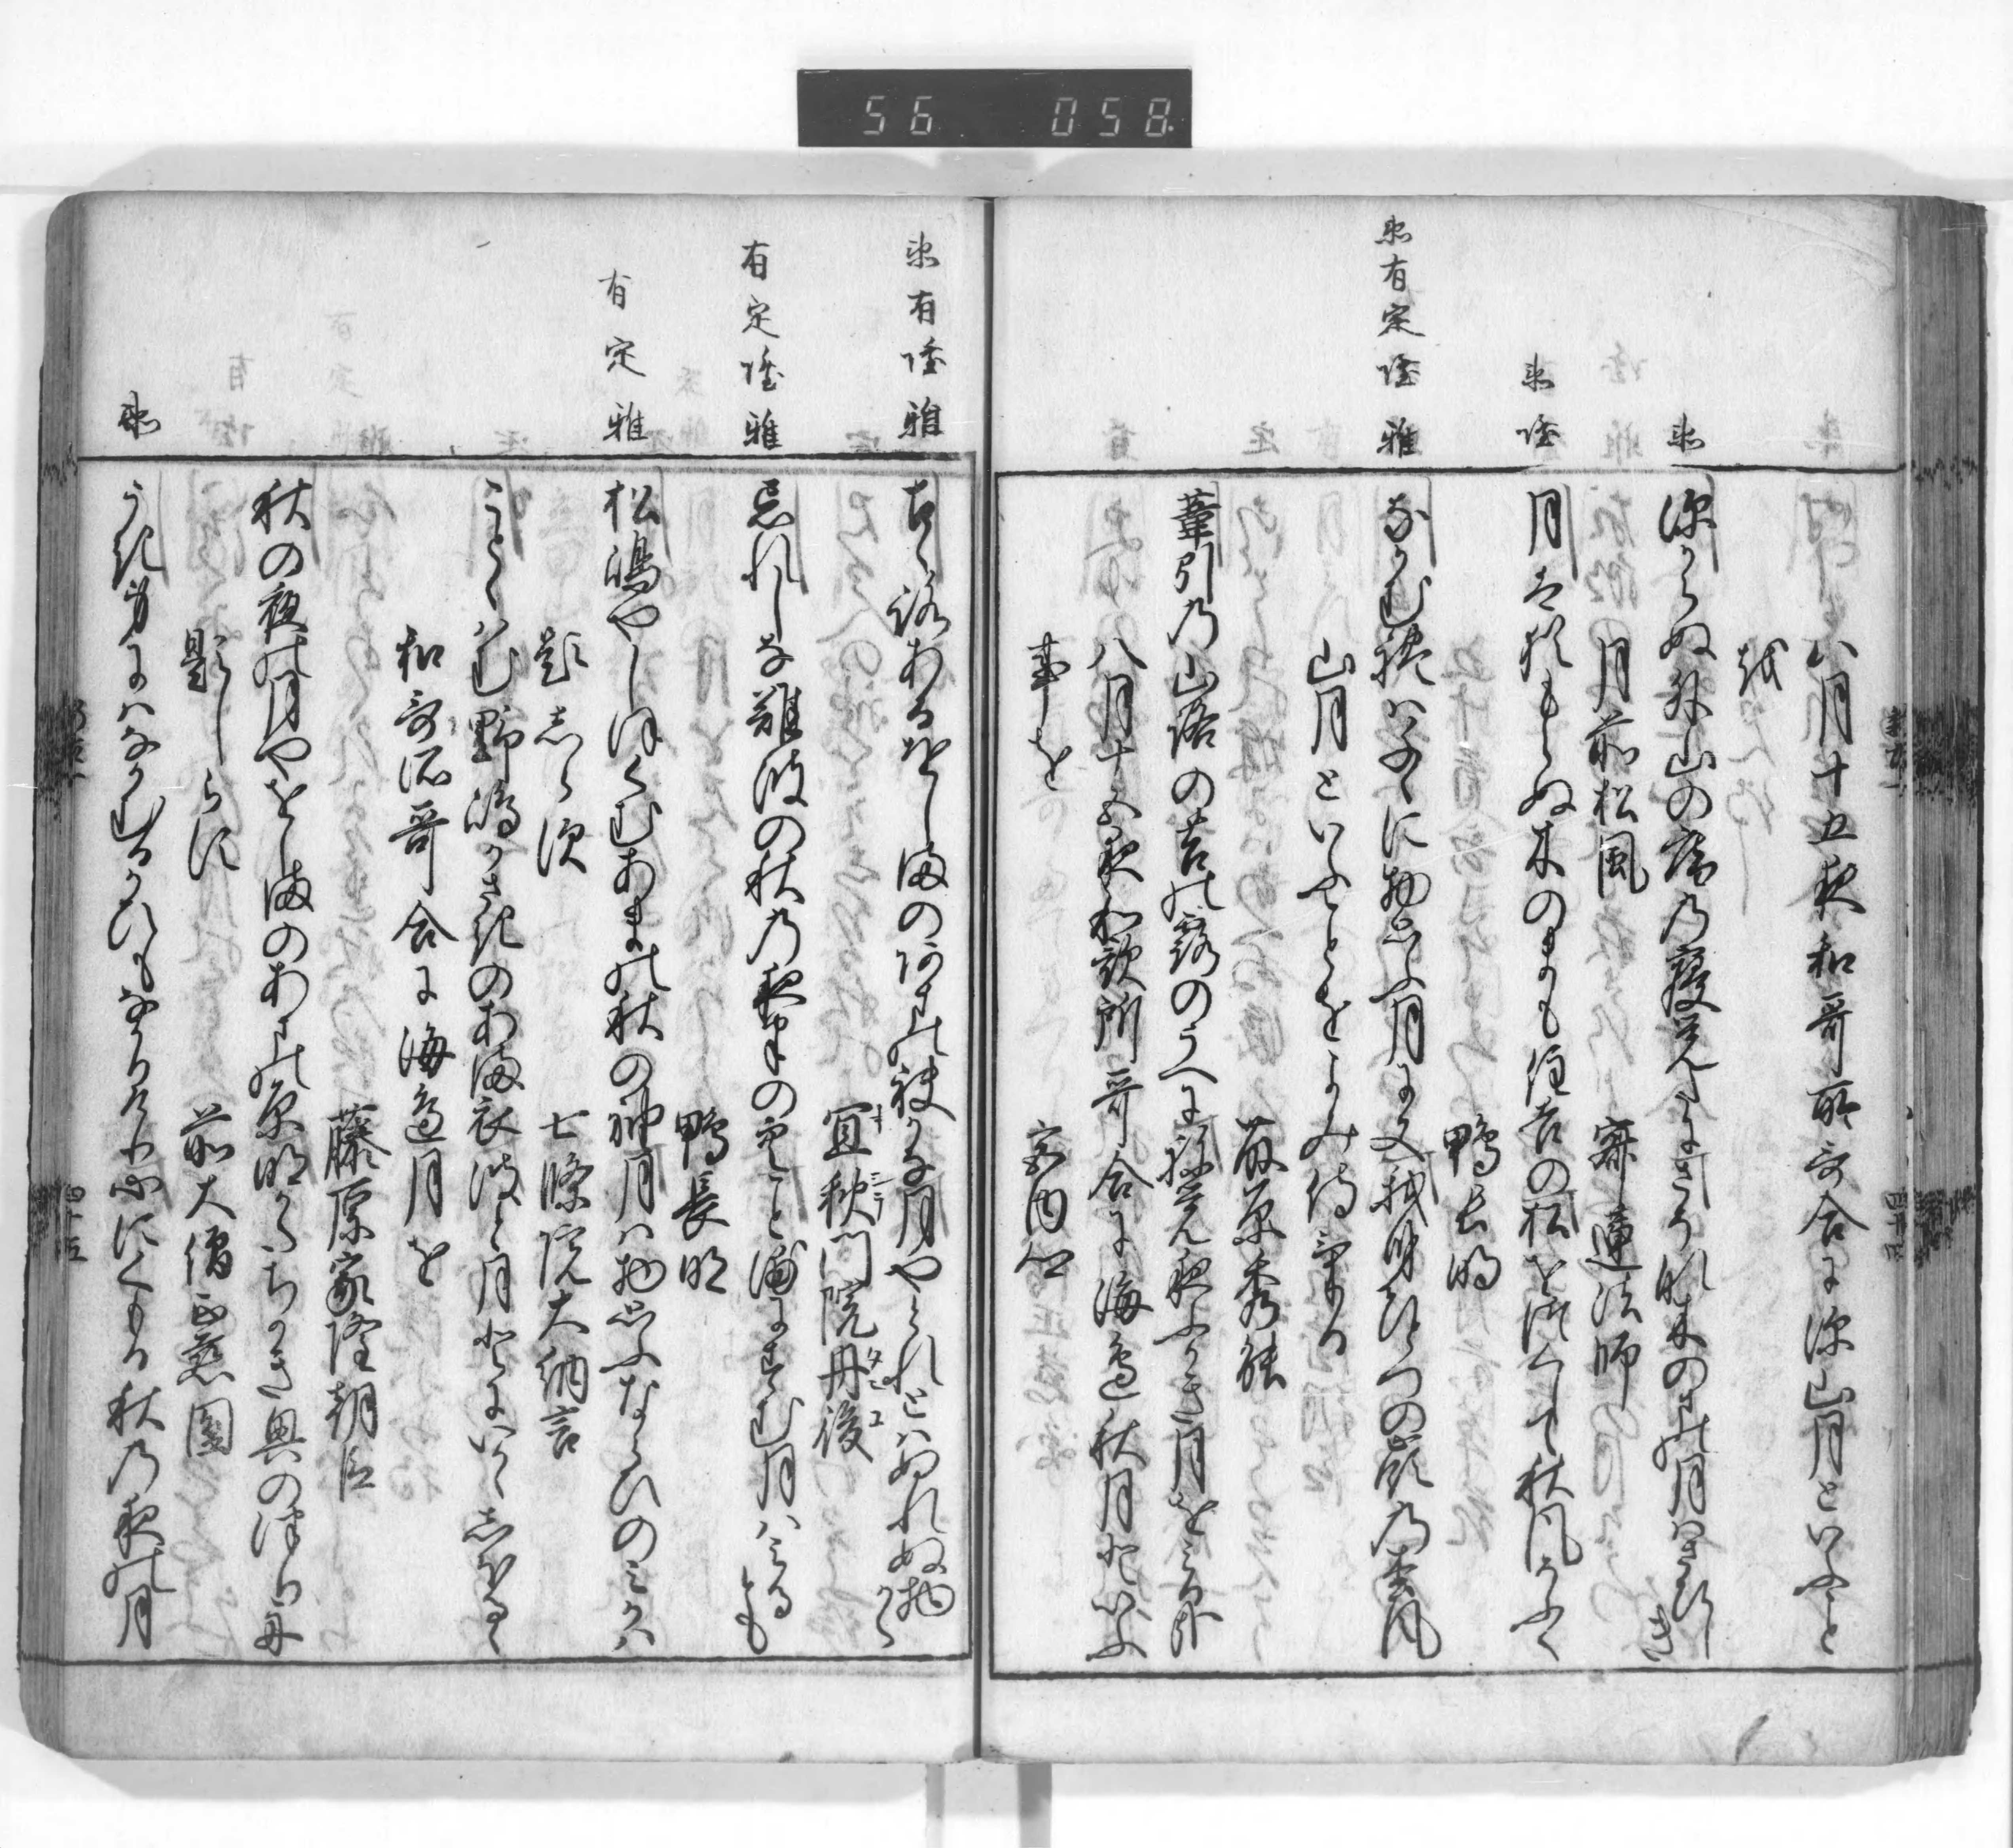 56 058
八月十五夜和哥所哥合に深山月といふこと
を
通
深からぬ外山の庵の寝覚たにさそな木のまの月はさひしき
月前松風
寂蓮法師
通隆
月はなをもらぬ木のまも住吉の松をつくして秋風そふく
鴨長明
通有定隆雅
なかむれはちゝに物思ふ月に又我身ひとつの嶺の松風
山月といふことをよみ侍ける
藤原秀能
葦引の山路の苔の露のうへに寝覚夜ふかき月をみる哉
八月十五夜和歌所哥合に海辺秋月といふ
事を
宮内卿
通有隆雅
心あるをしまのあまの袂かな月やとれとはぬれぬ物から
宜秋門院丹後
有定隆雅
忘れしな難波の秋の夜半の空こと浦にすむ月はみるとも
鴨長明
有定雅
松嶋やしほくむあまの秋の袖月は物思ふならひのみかは
題しらす
七條院大納言
こととはむ野嶋かさきのあま衣波と月とにいかゝしほるゝ
和哥所哥合に海辺月を
藤原家隆朝臣
秋の夜の月やをしまのあまの原明かたちかき奥の津り舟
題しらす
前大僧正慈圓
通
うき身にはなかむるかひもなかりけり心にくもる秋の夜の月